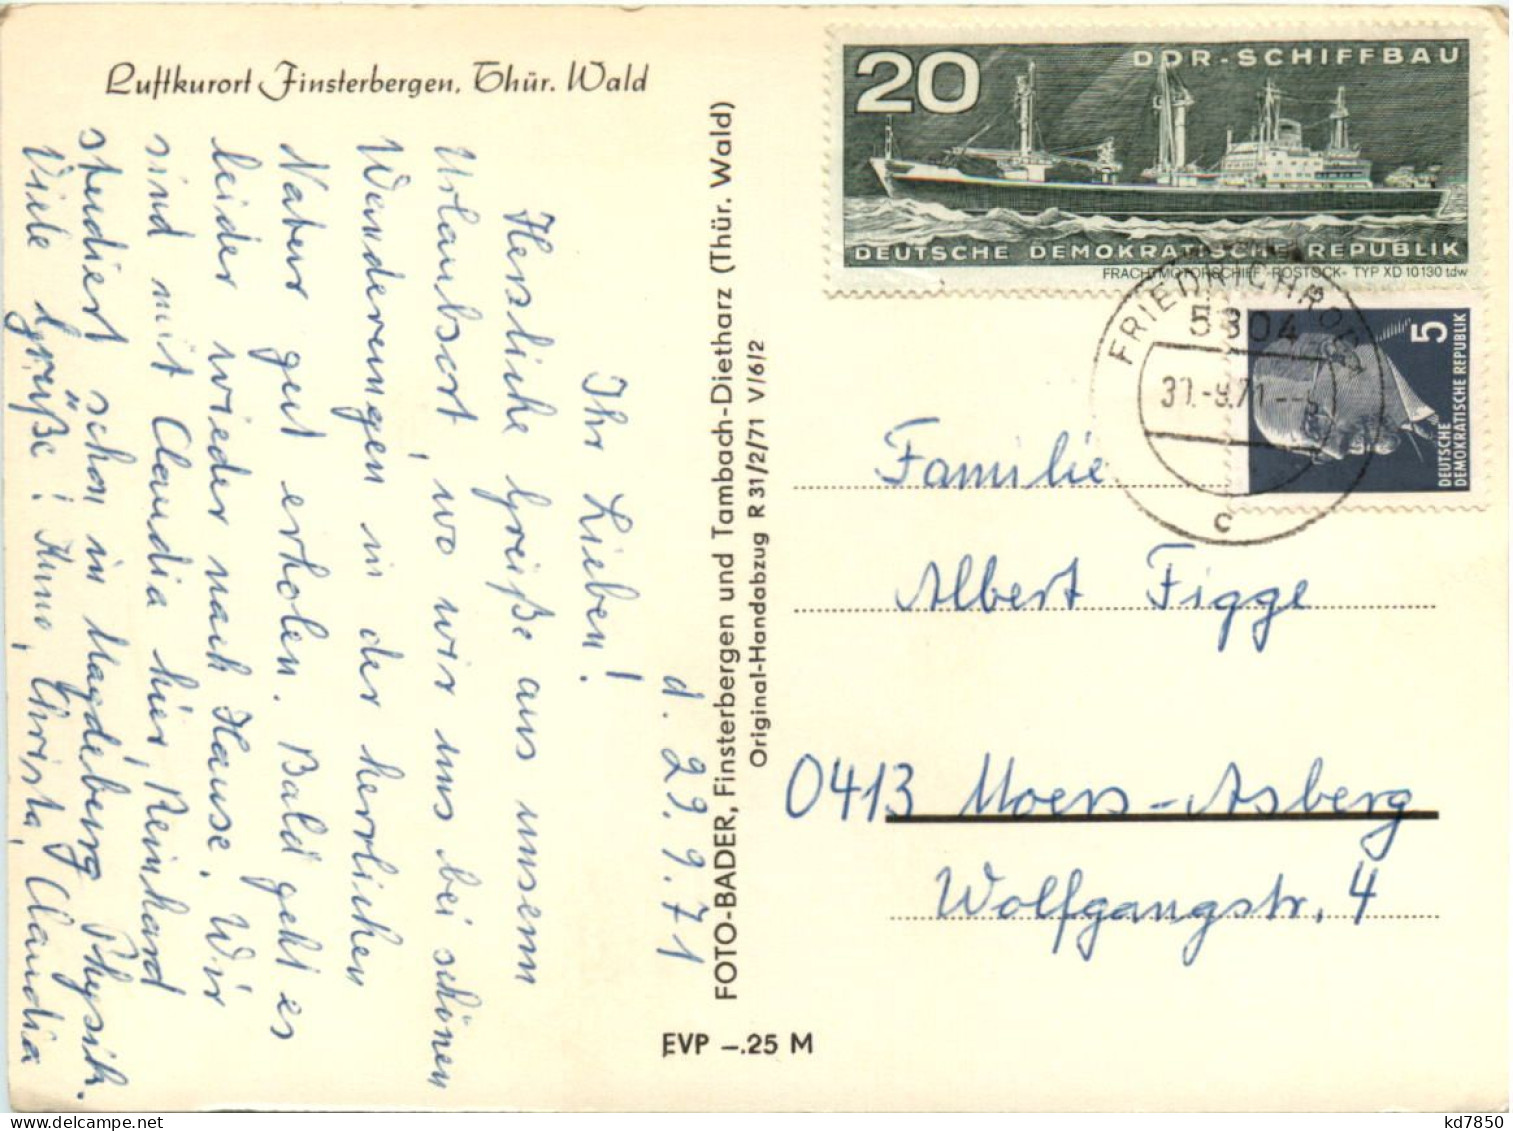 Luftkurort Finsterbergen, Thür. Wald
d. 29.9.71
Ihr Lieben!
Herzliche Grüße aus unserm
Urlaubsort, wo wir uns bei schönen
Wanderungen in der herrlichen
Natur gut erholen. Bald geht es
leider wieder nach Hause. Wir
sind mit Claudia hier, Reinhard
studiert schon in Magdeburg Physik.
Viele Grüße! Kuno, Christa, Claudia
FOTO-BADER, Finsterbergen und Tambach-Dietharz (Thür. Wald)
Original-Handabzug R 31/2/71 V/6/2
EVP –.25 M
20
DDR-SCHIFFBAU
DEUTSCHE DEMOKRATISCHE REPUBLIK
FRACHTMOTORSCHIFF »ROSTOCK« TYP XD 10130 tdw
5
DEUTSCHE
DEMOKRATISCHE REPUBLIK
FRIEDRICHRODA
5804
30.-9.71
c
Familie
Albert Figge
0413 Moers-Asberg
Wolfgangstr. 4
kd7850